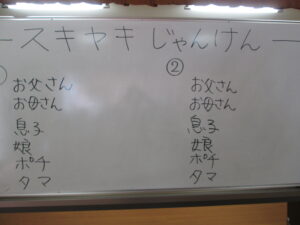 ースキヤキじゃんけんー
②
お父さん
お母さん
息子
娘
ポチ
タマ
お父さん
お母さん
息子
娘
ポチ
タマ